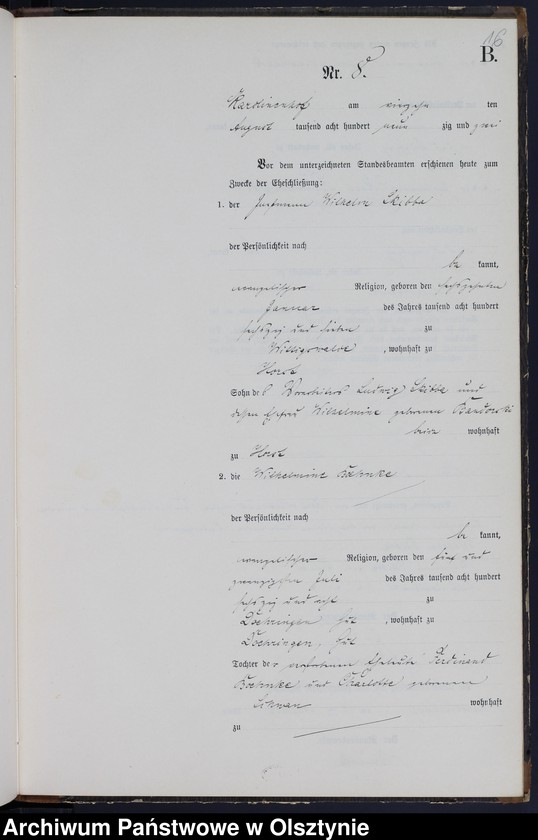 16
B.
Nr. 8.
Karolinenhof am vierzehn ten
August tausend acht hundert neun zig und zwei
Vor dem unterzeichneten Standesbeamten erschienen heute zum
Zwecke der Eheschließung:
1. der Wilhelm Skibba
der Persönlichkeit nach
be kannt,
evangelischer Religion, geboren den sechszehnten
Januar des Jahres tausend acht hundert
sechszig und sieben zu
, wohnhaft zu
Horst
Sohn des Ludwig Skibba und
dessen Ehefrau Wilhelmine geborenen
wohnhaft
zu Horst
2. die Wilhelmine Boehnke
der Persönlichkeit nach
be kannt,
evangelischer Religion, geboren den fünf und
zwanzigsten Juli des Jahres tausend acht hundert
sechszig und acht zu
Doehringen, Gut , wohnhaft zu
Doehringen, Gut
Tochter der verstorbenen Eheleute Ferdinand
Boehnke und Charlotte geborenen
wohnhaft
zu
Archiwum Państwowe w Olsztynie